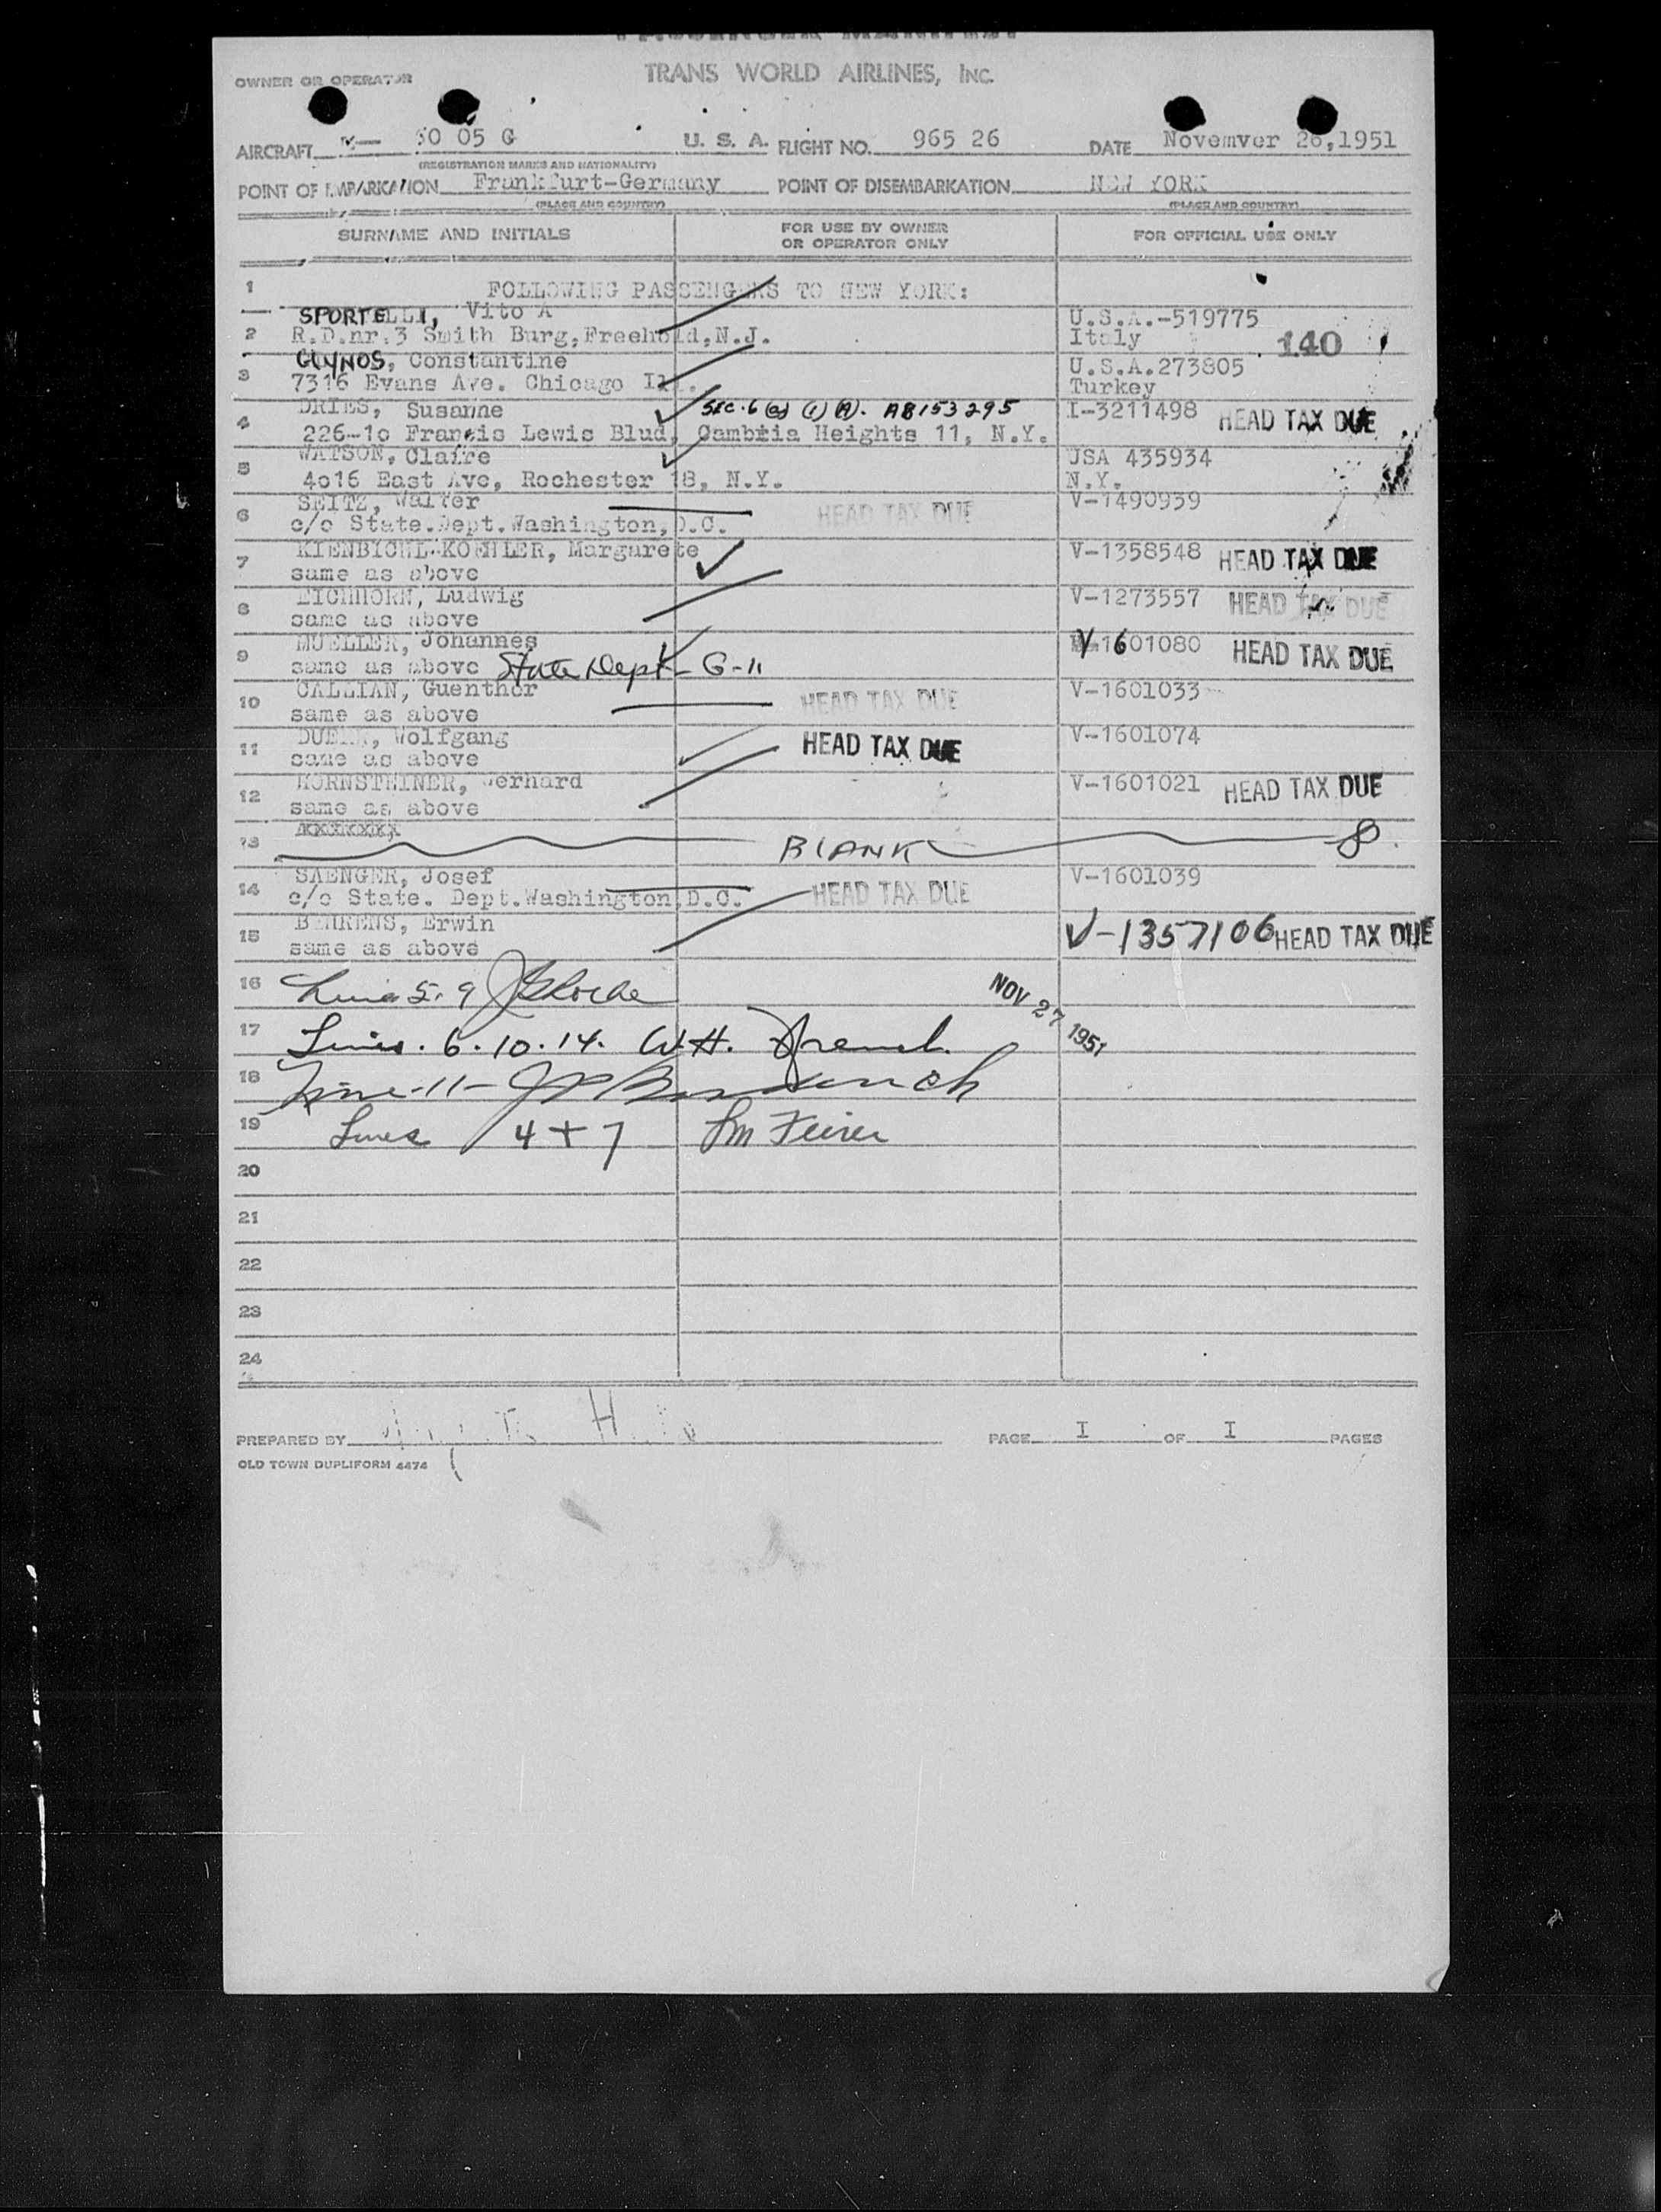 OWNER OR OPERATOR
TRANS WORLD AIRLINES, INC.
AIRCRAFT 60 05 G U. S. A. FLIGHT NO. 965 26 DATE Novemver 26,1951
(REGISTRATION MARKS AND NATIONALITY)
POINT OF EMBARKATION Frankfurt-Germany POINT OF DISEMBARKATION NEW YORK
(PLACE AND COUNTRY) (PLACE AND COUNTRY)
SURNAME AND INITIALS FOR USE BY OWNER OR OPERATOR ONLY FOR OFFICIAL USE ONLY
1 FOLLOWING PASSENGERS TO NEW YORK:
SPORTELLI, Vito A U.S.A.-519775
2 R.D.nr.3 Smith Burg,Freehold,N.J. Italy 140
GLYNOS, Constantine U.S.A.273805
3 7316 Evans Ave. Chicago Ill. Turkey
DRIES, Susanne SEC. 6 (a) (1) (A). A8153295 I-3211498 HEAD TAX DUE
4 226-10 Francis Lewis Blud, Cambria Heights 11, N.Y.
WATSON, Claire USA 435934
5 4016 East Ave, Rochester 18, N.Y. N.Y.
SEITZ, Walter V-1490939
6 c/o State.Dept.Washington,D.C. HEAD TAX DUE
KIENBICHL-KOEHLER, Margarete V-1358548 HEAD TAX DUE
7 same as above
EICHHORN, Ludwig V-1273557 HEAD TAX DUE
8 same as above
MUELLER, Johannes V-1601080 HEAD TAX DUE
9 same as above State Dept - G-11
CALLIAN, Guenther V-1601033
10 same as above HEAD TAX DUE
Wolfgang HEAD TAX DUE V-1601074
11 same as above
HORNSTEINER, Gerhard V-1601021 HEAD TAX DUE
12 same as above
13 BLANK
SAENGER, Josef V-1601039
14 c/o State. Dept.Washington,D.C. HEAD TAX DUE
BEHRENS, Erwin V-1357106 HEAD TAX DUE
15 same as above
16 5. 9
NOV 27 1951
17 Lines. 6. 10. 14. W.H. French
18 Line-11-
19 Lines 4 + 7
20
21
22
23
24
PREPARED BY PAGE I OF I PAGES
OLD TOWN DUPLIFORM 4474